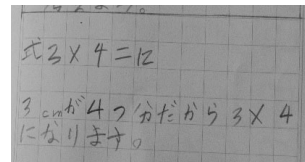 式3×4=12
3cmが4つ分だから3×4
になります。